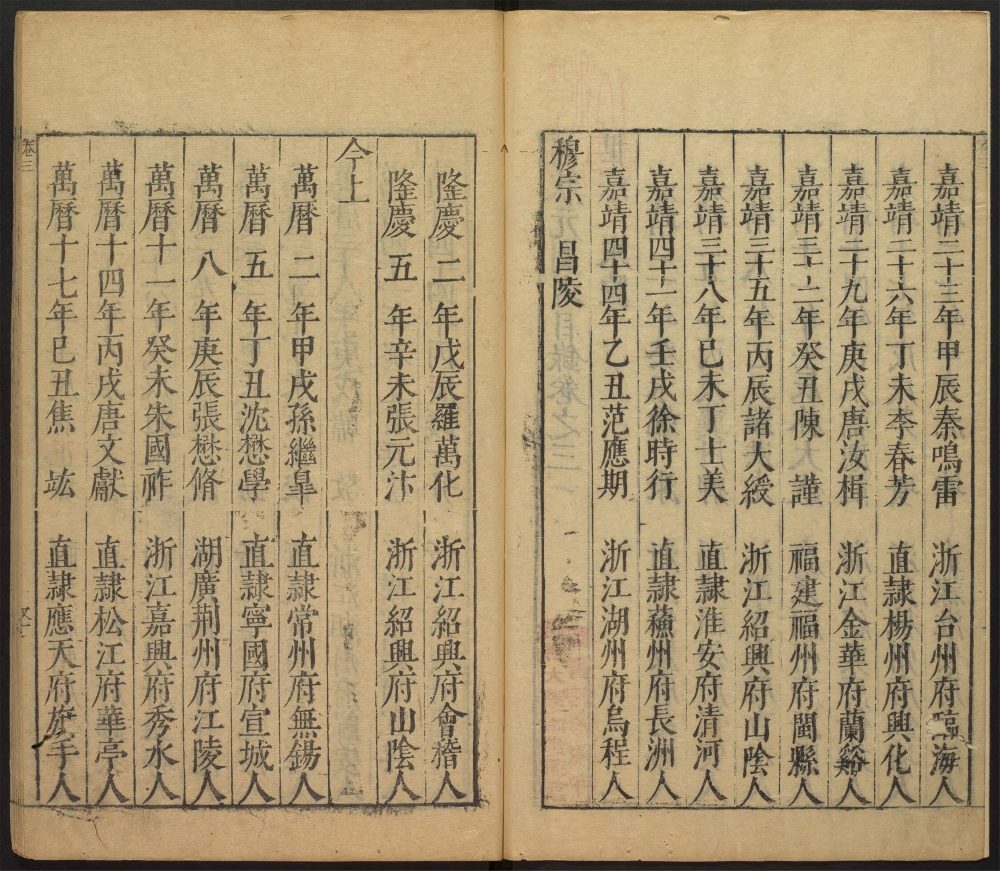 嘉靖二十三年甲辰秦鳴雷 浙江台州府臨海人
嘉靖二十六年丁未李春芳 直隸楊州府興化人
嘉靖二十九年庚戌唐汝楫 浙江金華府蘭谿人
嘉靖三十二年癸丑陳 謹 福建福州府閩縣人
嘉靖三十五年丙辰諸大綬 浙江紹興府山陰人
嘉靖三十八年己未丁士美 直隸淮安府清河人
嘉靖四十一年壬戌徐時行 直隸蘓州府長洲人
嘉靖四十四年乙丑范應期 浙江湖州府烏程人
穆宗 昌陵
隆慶二年戊辰羅萬化 浙江紹興府會稽人
隆慶五年辛未張元汴 浙江紹興府山陰人
今上
萬曆二年甲戌孫繼皐 直隸常州府無錫人
萬曆五年丁丑沈懋學 直隸寧國府宣城人
萬曆八年庚辰張懋脩 湖廣荆州府江陵人
萬曆十一年癸未朱國祚 浙江嘉興府秀水人
萬曆十四年丙戌唐文獻 直隸松江府華亭人
萬曆十七年己丑焦 竑 直隸應天府旗手人
卷三